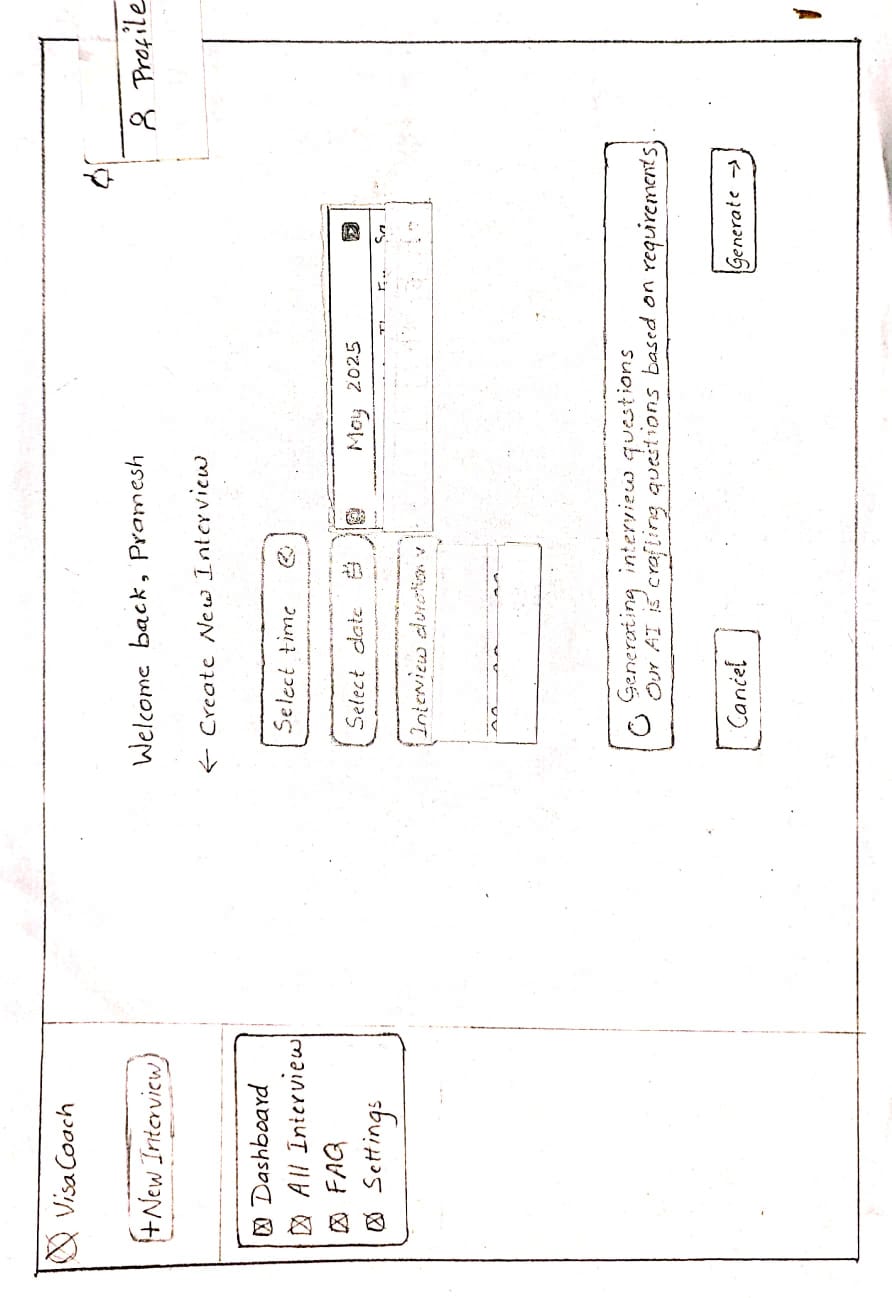 VisaCoach
+New Interview
Dashboard
All Interview
FAQ
Settings
Welcome back, Pramesh
Profile
← Create New Interview
Select time
Select date
May 2025
Sa
Interview duration
Generating interview questions
Our AI is crafting questions based on requirements.
Cancel
Generate →